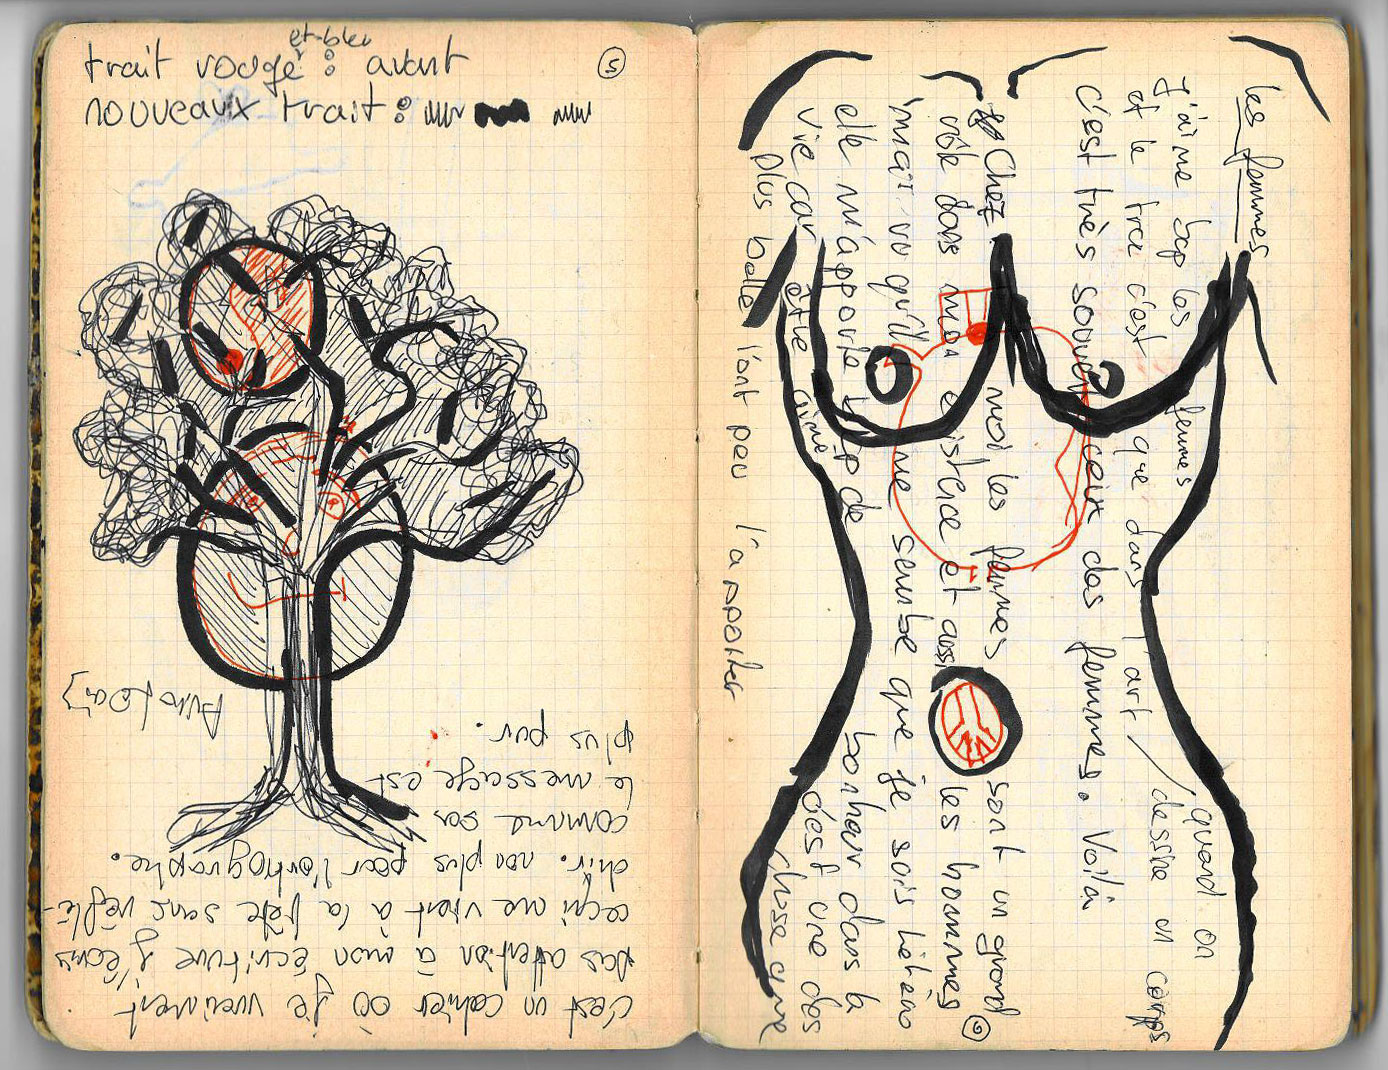 trait rouge et bleu : avant
nouveaux trait :
5
c'est un cahier où je vraiment
pas attention à mon écriture j'écris
ceçui me vient à la tête sans réflé-
chir. non plus pour l'orthographe.
comme sa
le message est
plus pur.
les femmes
J'aime bcp les femmes, quand on
et le truc c'est que dans l'art / dessine un corps
c'est très souvent ceux des femmes. Voilà
Chez moi, les femmes sont un grand
rôle dans mon existance et aussi les hommes
mai vu qu'il me semble que je sois hétéro
elle m'apporte bcp de bonheur dans la
vie car être aimé c'est une des
plus belle chose que
l'ont peu l'apporter